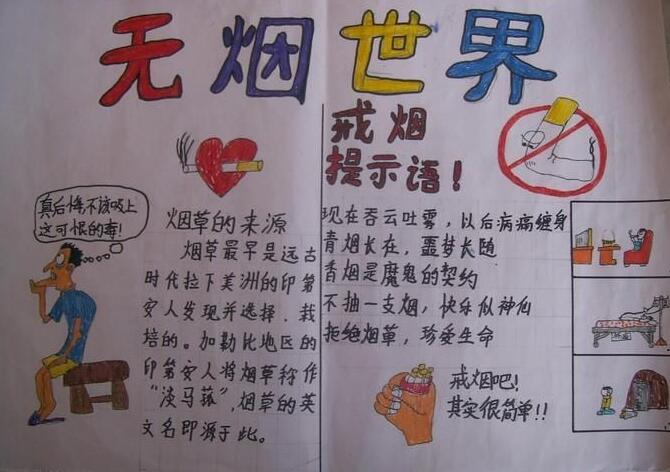 无烟世界
戒烟
提示语！
真后悔,不该吸上
这可恨的毒!
烟草的来源
烟草最早是远古
时代拉丁美洲的印第
安人发现并选择．栽
培的。加勒比地区的
印第安人将烟草称作
“淡马菰”,烟草的英
文名即源于此。
现在吞云吐雾，以后病痛缠身
青烟长在，噩梦长随
香烟是魔鬼的契约
不抽一支烟，快乐似神仙
拒绝烟草，珍爱生命
戒烟吧!
其实很简单!!